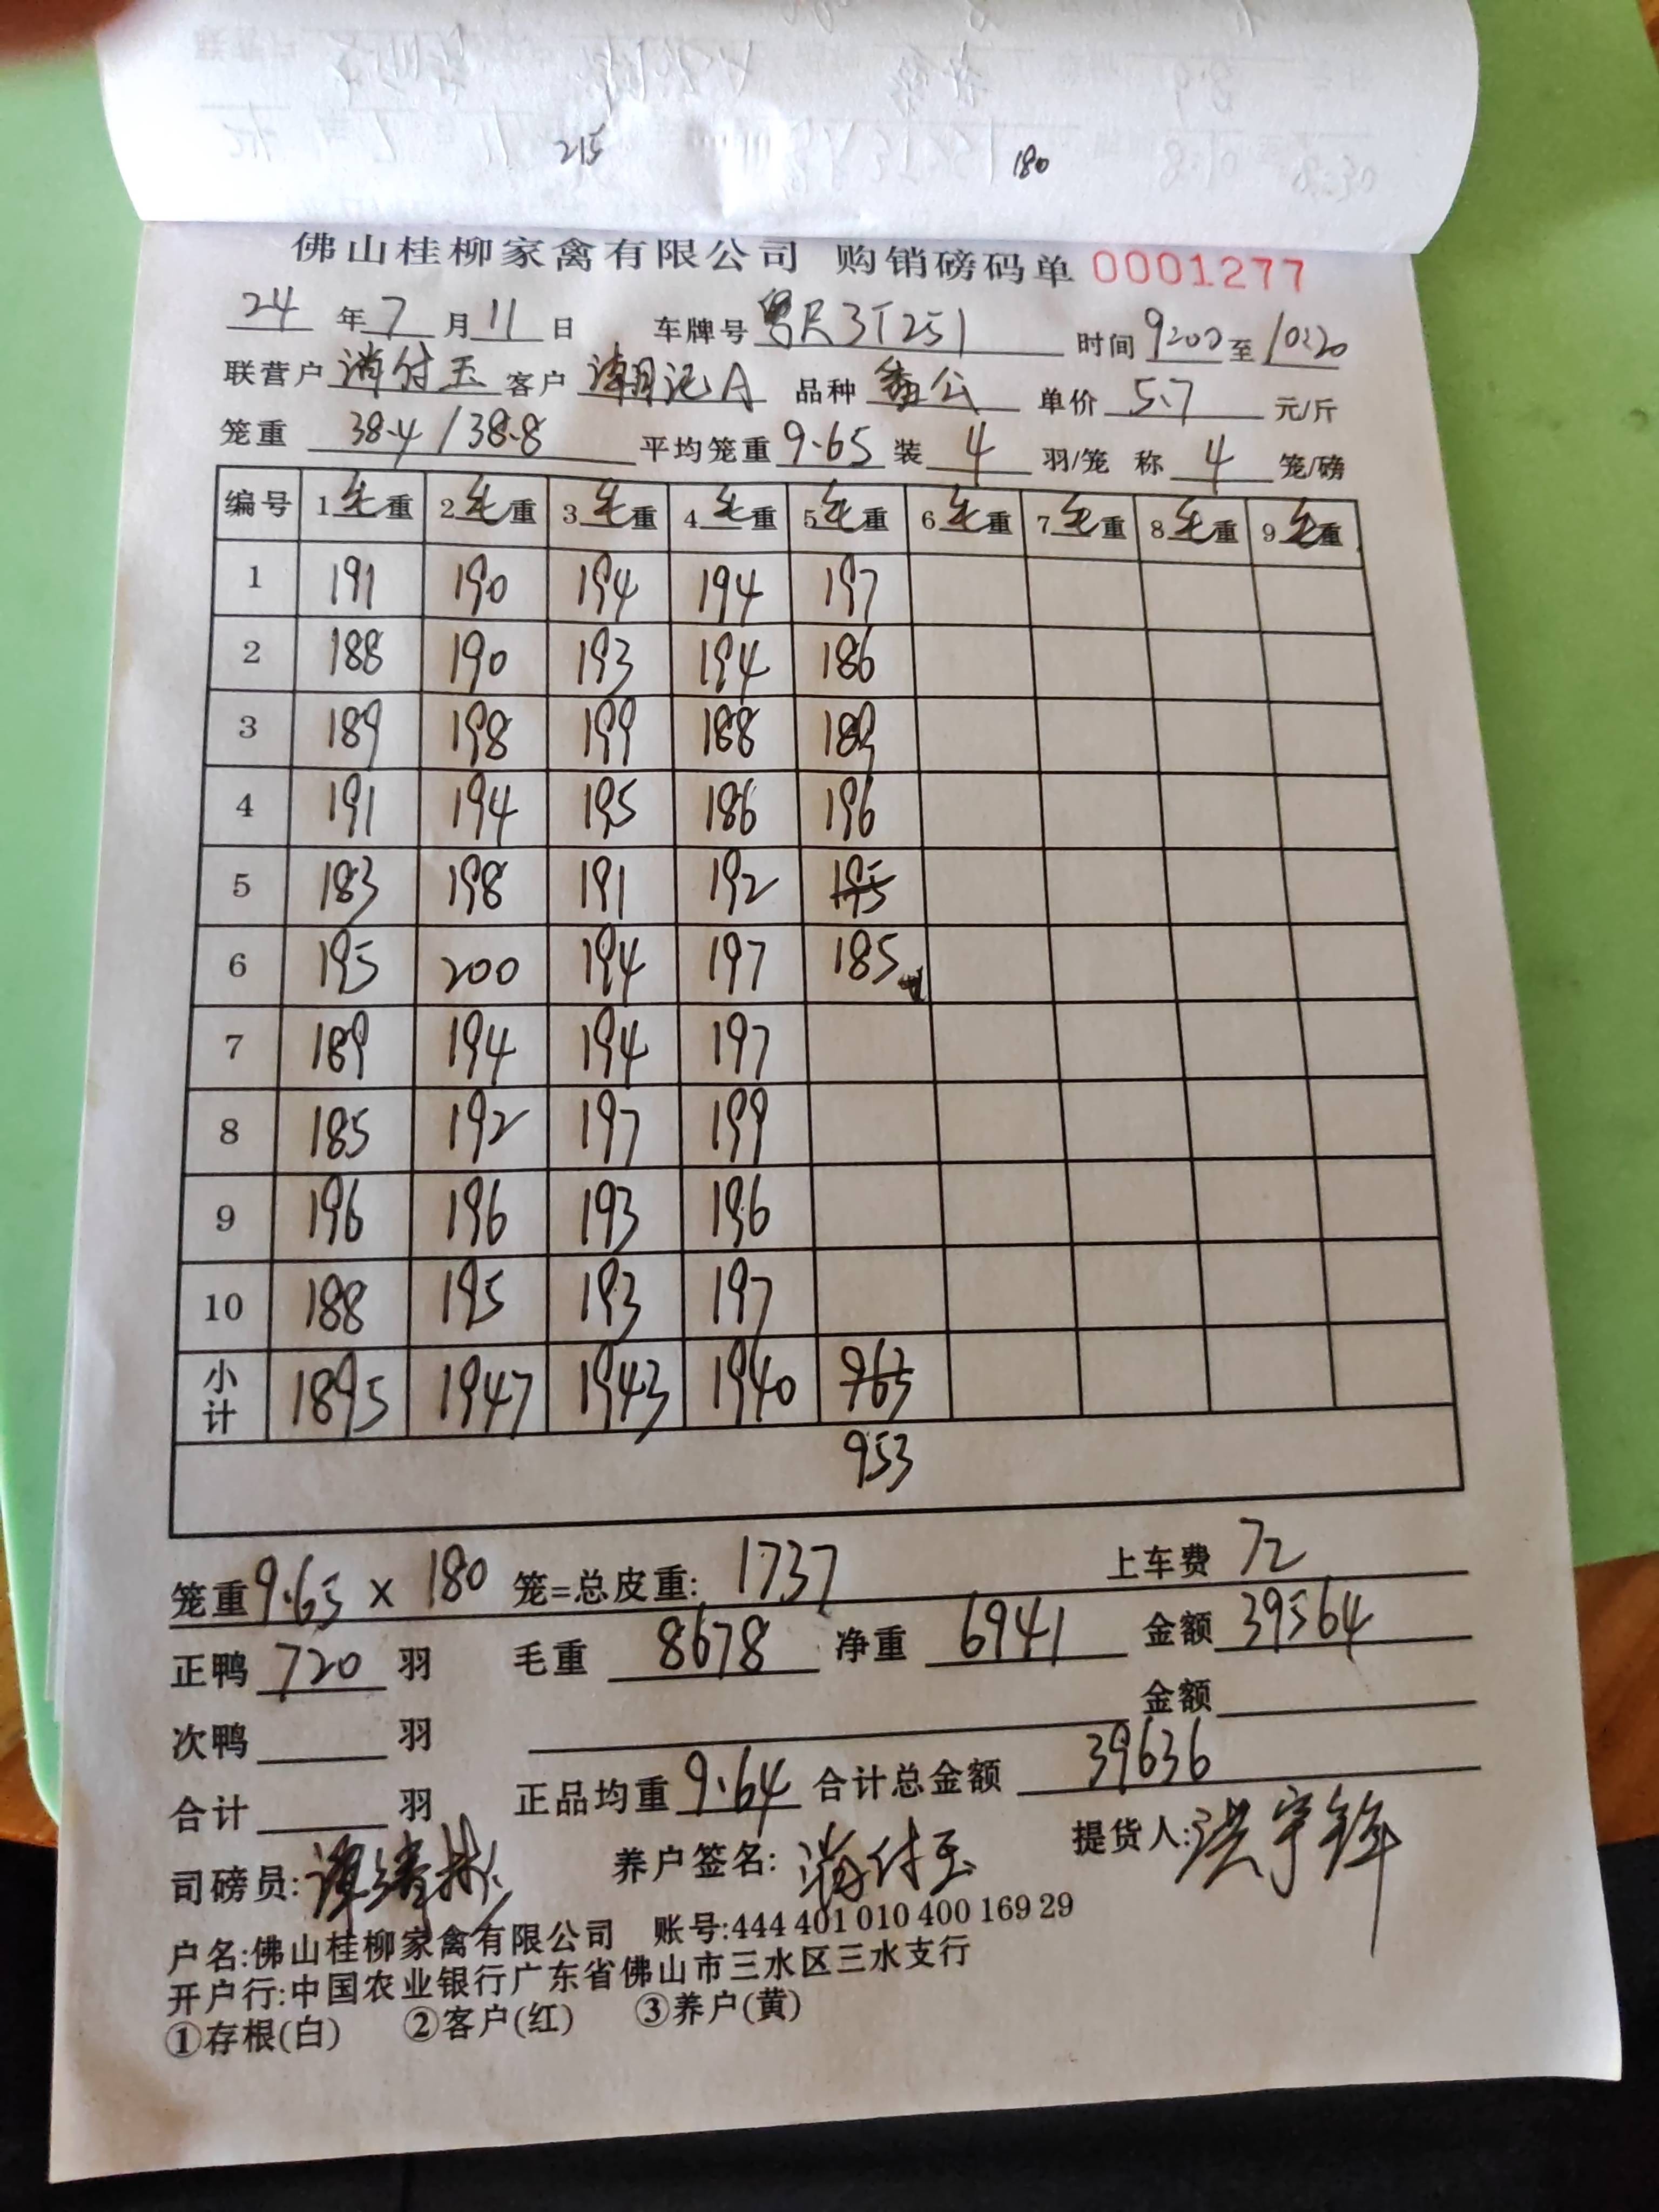 215 180
佛山桂柳家禽有限公司 购销磅码单 0001277
24 年 7 月 11 日 车牌号 粤R3T251 时间 9:00 至 10:20
联营户 付玉 客户 潮记A 品种 公 单价 5.7 元/斤
笼重 38.4 / 38.8 平均笼重 9.65 装 4 羽/笼 称 4 笼/磅
编号 1 毛重 2 毛重 3 毛重 4 毛重 5 毛重 6 毛重 7 毛重 8 毛重 9 毛重
1 191 190 194 194 197
2 188 190 193 194 186
3 189 198 199 188 189
4 191 194 195 186 196
5 183 198 191 192 195
6 195 200 194 197 185
7 189 194 194 197
8 185 192 197 199
9 196 196 193 196
10 188 195 193 197
小计 1895 1947 1943 1940 963
953
笼重 9.65 × 180 笼=总皮重: 1737 上车费 72
正鸭 720 羽 毛重 8678 净重 6941 金额 39564
次鸭 羽 金额
合计 羽 正品均重 9.64 合计总金额 39636
司磅员: 养户签名: 付玉 提货人: 洪宇锋
户名:佛山桂柳家禽有限公司 账号:444 401 010 400 169 29
开户行:中国农业银行广东省佛山市三水区三水支行
①存根(白) ②客户(红) ③养户(黄)